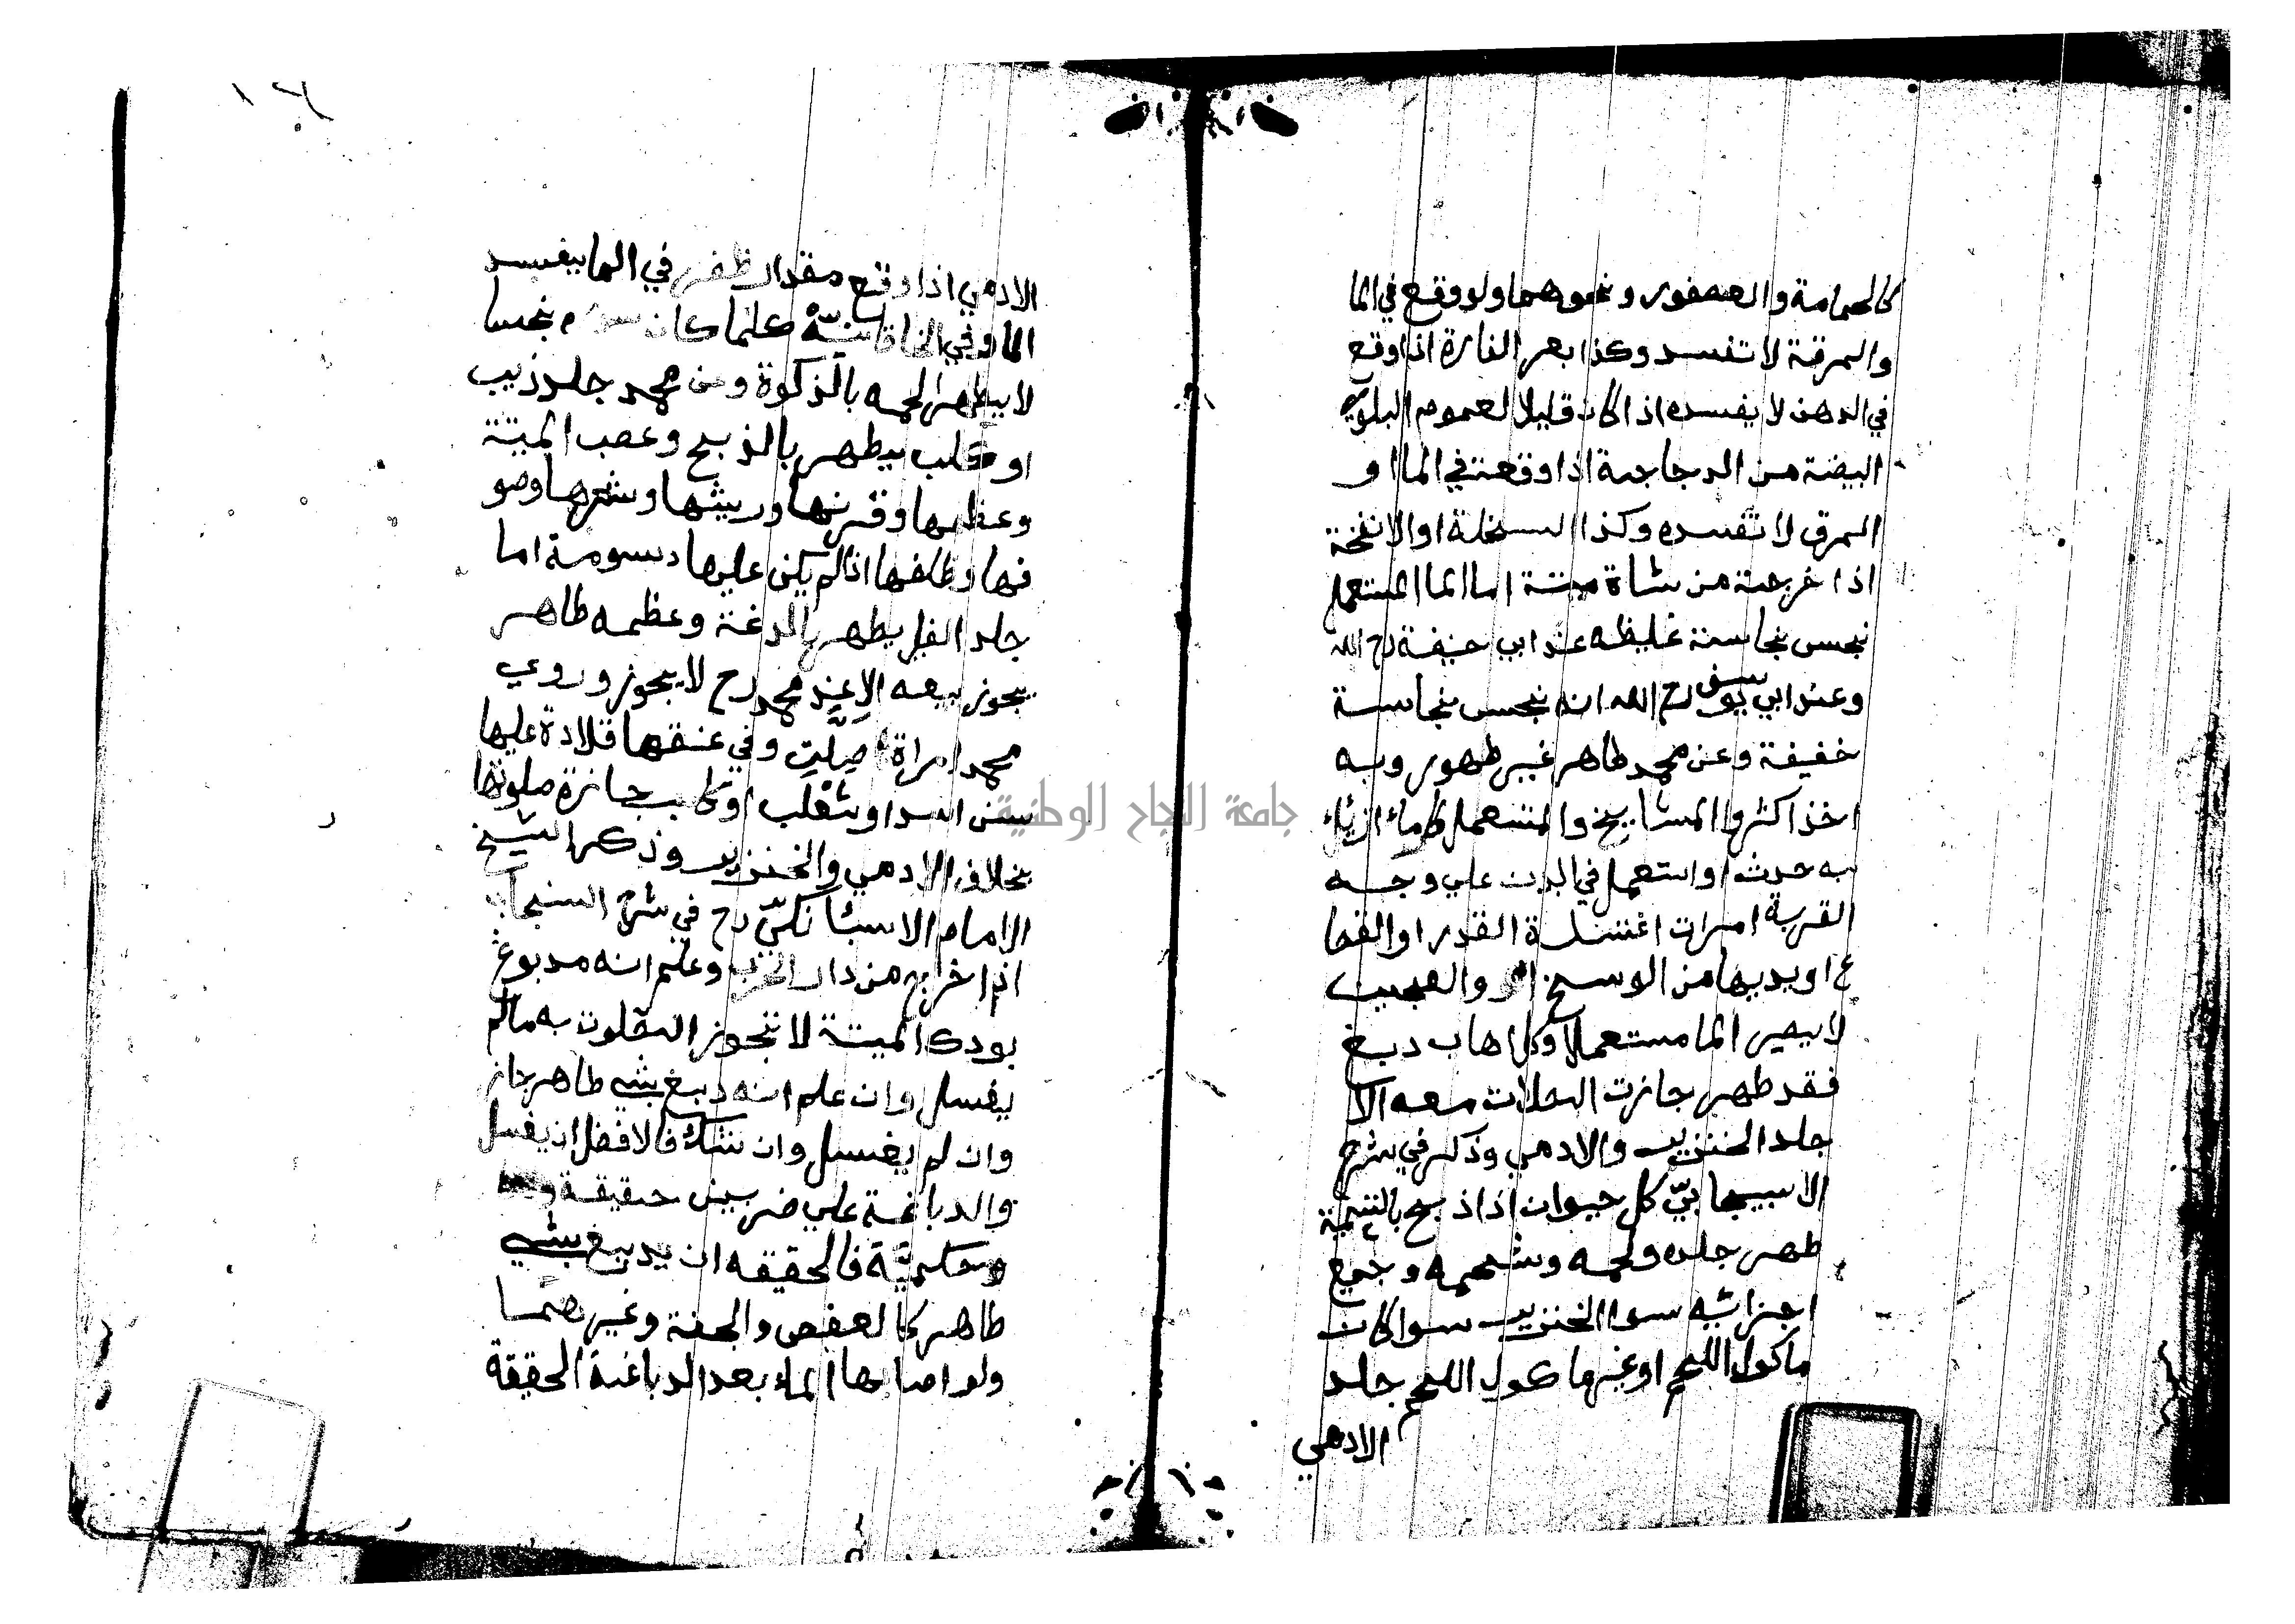 كالحمامة والعصفور ونحوهما ولو وقع في الما
والمرقة لا تفسد وكذا بعر الفارة اذا وقع
في الدهن لا يفسده اذا كان قليلا لعموم البلوي
البيضة من الدجاجة اذا وقعة في الما او
المرق لا تفسده وكذا السخلة او الانفخة
اذا خرجة من شاة ميتة اما الما المستعمل
نجس نجاسة غليظه عند ابي حنيفة رح الله
وعند ابي يوسف رح الله انه نجس نجاسة
خفيفة وعن محمد طاهر غير طهور وبه
اخذ اكثر المشايخ والمستعمل كل ماء ازيل
به حدث او استعمل في البدن علي وجه
القربة امرات اغتسلة القدر او القصا
ع او يديها من الوسخ والعجين
لا يصير الما مستعملا وكل اهاب دبغ
فقد طهر جازت الصلات معه الا
جلد الخنزير والادمي وذكر في شرح
الاسبيجابيّ كل حيوان اذا ذبح بالتسمية
طهر جلده ولحمه وشحمه وجميع
اجزائه سوا الخنزير سوا كان
ماكول اللحم او غير ماكول اللحم جلد
الادمي
الادمي اذا وقع مقدار ظفر في الما يفسد
الما وفي كلما كان نجسا
لا يطهر لحمه بالذكوة وعن محمد جلد ذيب
او كلب يطهر بالذبح وعصب الميتة
وعظمها وقرنها وريشها وشعرها وصو
فها وظلفها اذا لم يكن عليها دسومة اما
جلد الفيل يطهر بالدبغة وعظمه طاهر
يجوز بيعه الا عند محمد رح لا يجوز وروي
محمد امراة صلّت وفي عنقها قلادة عليها
سن اسد او ثعلب او كلب جازة صلوتها
بخلاف الادمي والخنزير وذكر الشيخ
الامام رح في شرح
اذا خرج من دار الحرب وعلم انه مدبوغ
بودك الميتة لا تجوز الصلوت به مالم
يغسل وان علم انه دبغ بشي طاهر جاز
وان لم يغسل وان شك فالافضل ان يغسل
والدباغة علي ضربين حقيقة
وحكميّة فالحقيقه ان يدبغ بشي
طاهر كالعفص والجفة وغيرهما
ولو اصابها الماء بعد الدباغة الحقيقة
جامعة النجاح الوطنية